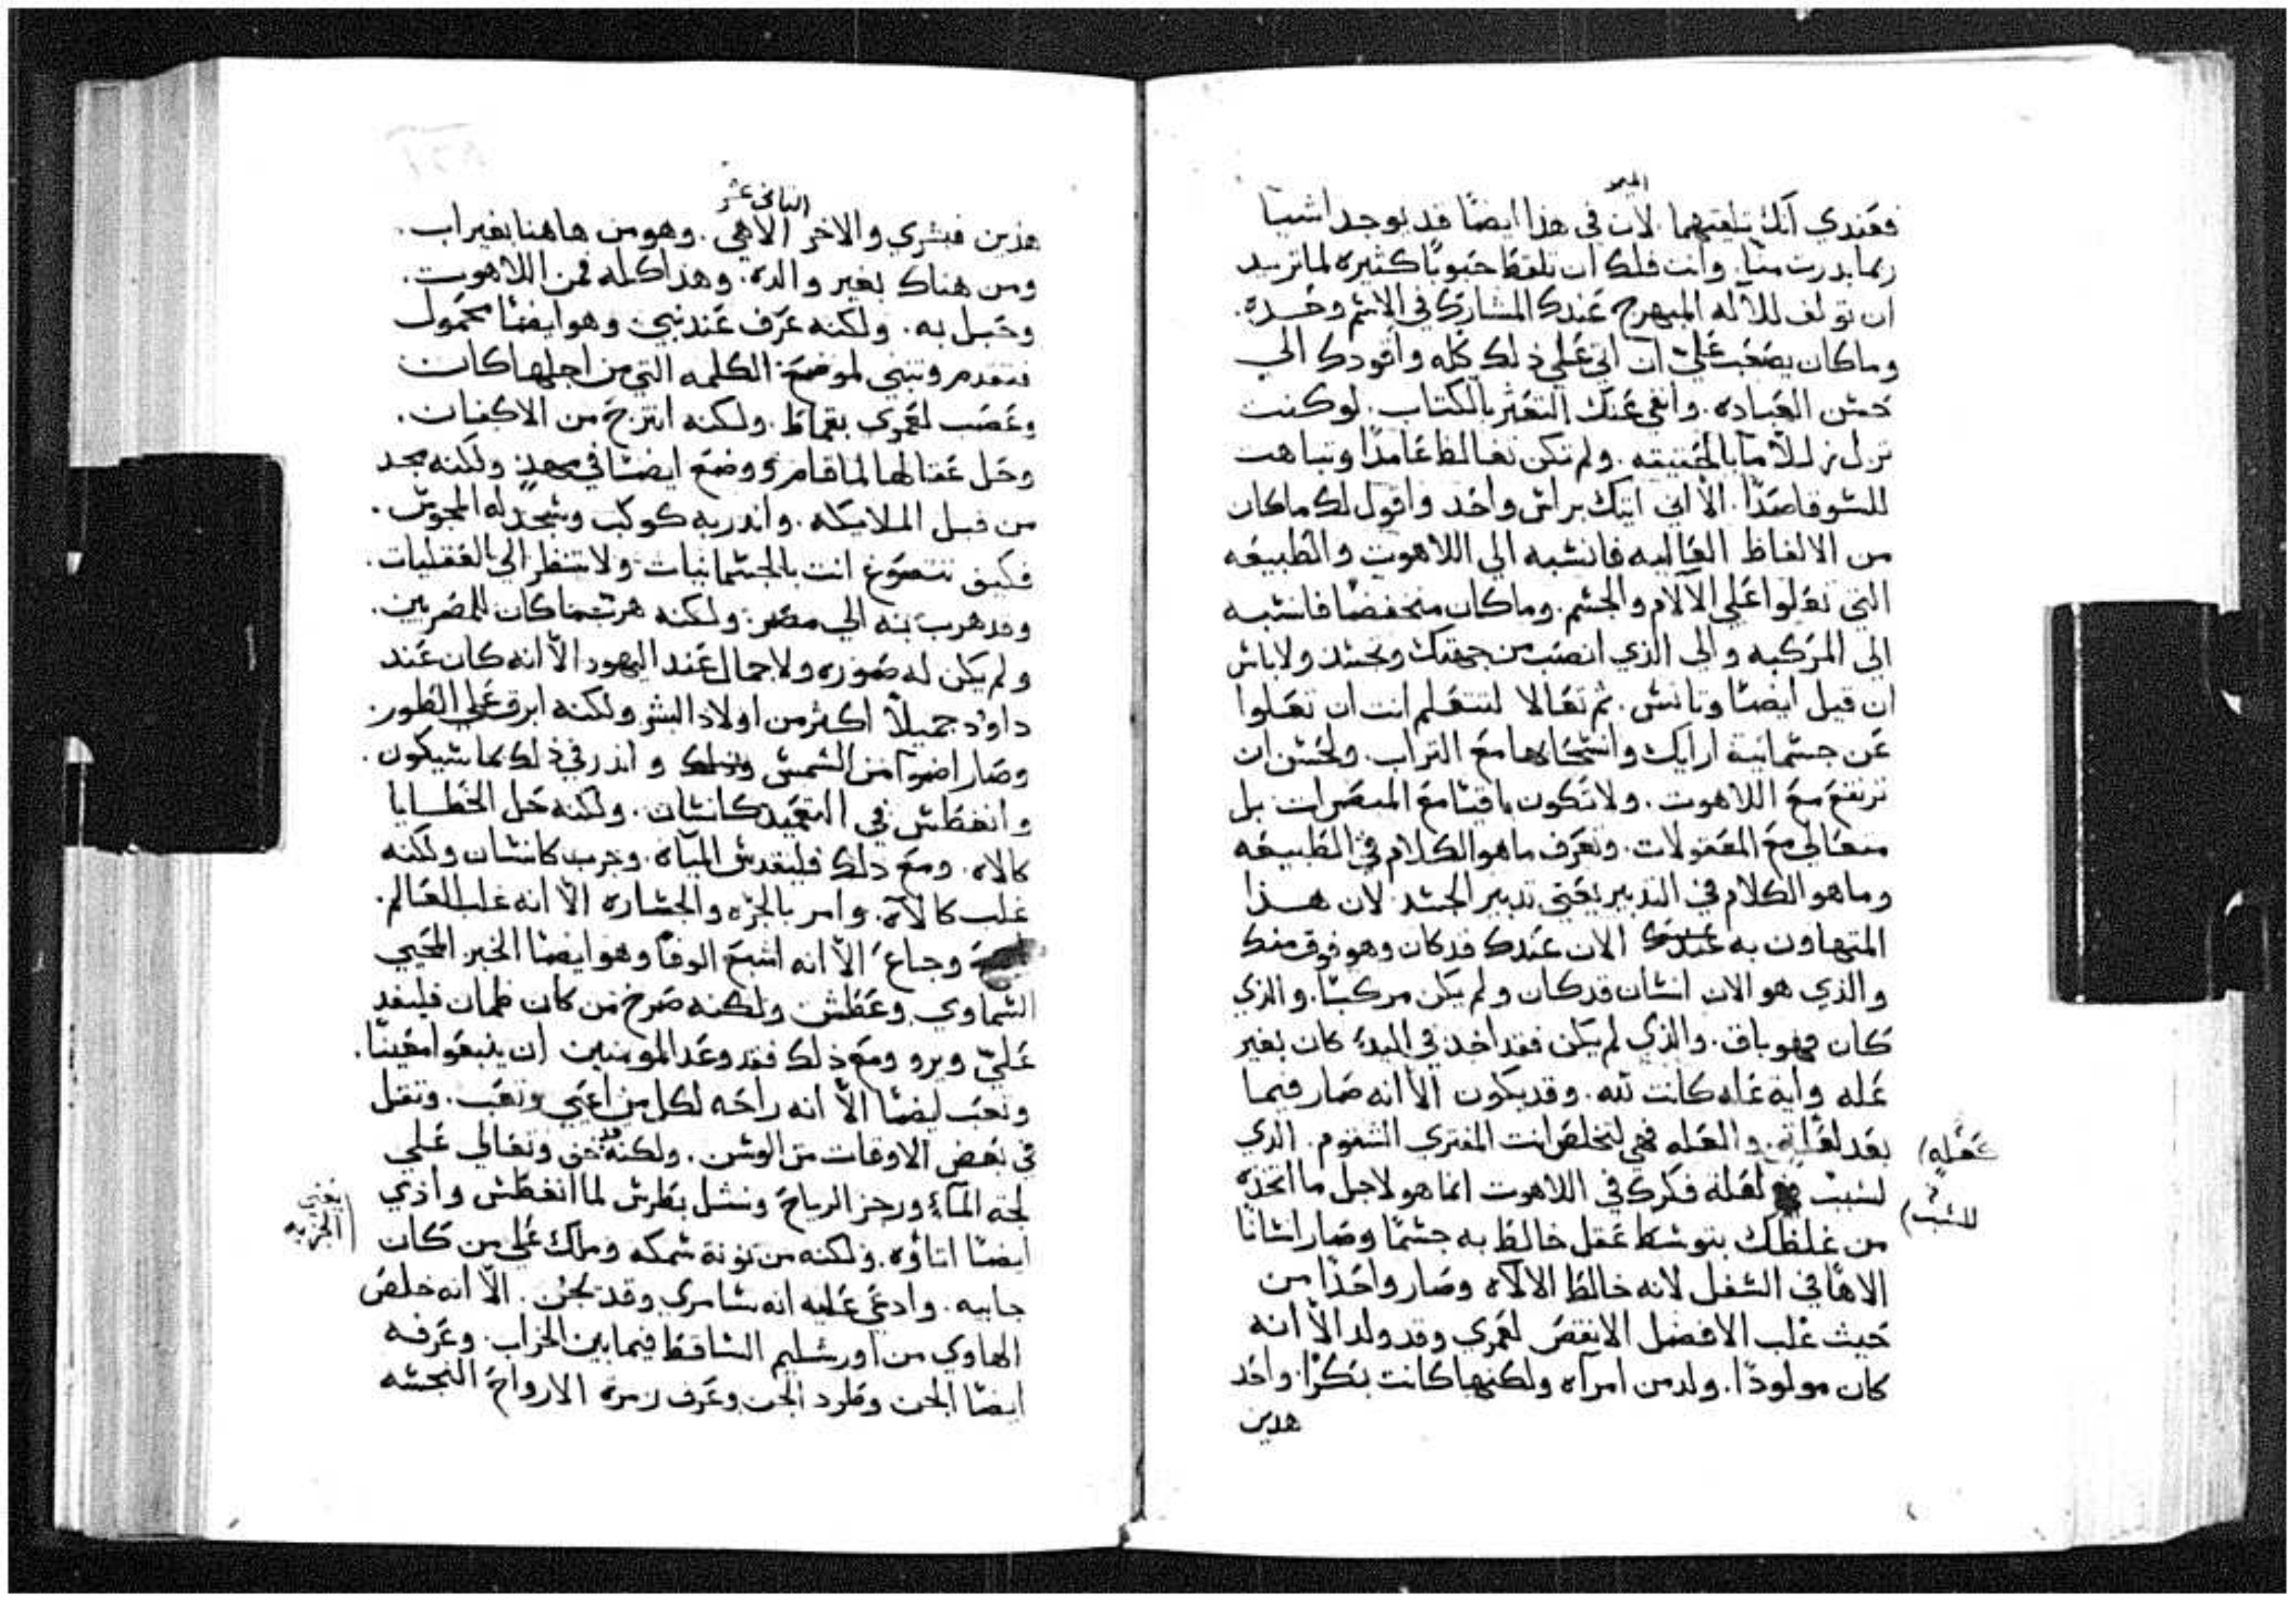 الميمر
فعندي انك تلقيهما. لان في هذا ايضًا قد يوجد اشيا
ربما بدرت منا. وانت فلك ان تلقط حبوبًا كثيره لما تريد
ان تولف للاله المبهرج عندك المشارك في الاسم وحده.
وما كان يصعب علي ان اتي علي ذلك كله واقودك الي
حسن العباده. وانفي عنك التعثر بالكتاب. لو كنت
بالحقيقه. ولم تكن تغالط عامدًا وتباهت
للسو قاصدًا. الا اني اتيك براس واحد واقول لك ما كان
من الالفاظ العاليه فانسبه الي اللاهوت والطبيعه
التي تعلوا علي الالام والجسم. وما كان منخفضًا فانسبه
الي المركبه والي الذي انصب من جهتك وتجسد ولا باس
ان قيل ايضًا وتانس. ثم تعالا لتتعلم انت ان تعلوا
عن جسمانية ارايك وانسحابها مع التراب. ولحسن ان
ترتفع مع اللاهوت. ولا تكون باقيًا مع المبصرات بل
متعالي مع المعقولات. وتعرف ما هو الكلام في الطبيعه
وما هو الكلام في التدبير يعني تدبير الجسد. لان هذا
المتهاون به الان عندك قد كان وهو فوق منك
والذي هو الان انسان قد كان ولم يكن مركبًا. والذي
كان فهو باق. والذي لم يكن فقد اخذ في البدء كان بغير
عله واية عله كانت لله. وقد يكون الا انه صار فيما
بعد لعلة. والعله فهي لتخلص انت المفتري الشتوم. الذي
لسبب لعله فكرك في اللاهوت انما هو لاجل ما اتخذه
من غلظك بتوسط عقل خالط به جسمًا وصار انسانًا
الاهًا في السفل لانه خالط الالاه وصار واحدًا من
حيث غلب الافضل الانقص لعمري وقد ولد الا انه
كان مولودًا. ولد من امراه ولكنها كانت بكرًا. واحد
هدين
للسبب
الثاني عشر
هذين فبشري والاخر الاهي. وهو من هاهنا بغير اب.
ومن هناك بغير والده. وهذا كله فمن اللاهوت.
وحبل به. ولكنه عرف عند نبي وهو ايضًا محمول
فتقدم ونبي لموضع الكلمه التي من اجلها كانت
وعصب لعمري بقماط. ولكنه انتزح من الاكفان.
وحل عقالها لما قام ووضع ايضًا في مهد ولكنه مجد
من قبل الملايكه. وانذر به كوكب وسجد له المجوس.
فكيف انت بالجسمانيات ولا تنظر الي العقليات.
وقد هرب به الي مصر. ولكنه هرب ما كان للمصريين.
ولم يكن له صوره ولا جمال عند اليهود الا انه كان عند
داوود جميلًا اكثر من اولاد البشر ولكنه ابرق علي الطور.
وصار اضوا من الشمس وانذر في ذلك بما سيكون.
وانغطس في التعميد كانسان. ولكنه حل الخطايا
كالاه. ومع ذلك فليقدس المياه. وجرب كانسان ولكنه
غلب كالاه. وامر بالجراه والجساره الا انه غلب العالم.
وجاع الا انه اشبع الوفًا وهو ايضًا الخبز المحيي
السماوي وعطش ولكنه صرخ من كان ظمان فليفد
علي ويرو ومع ذلك فقد وعد المومنين ان ينبعوا معينًا.
وتعب ايضًا الا انه راحه لكل من اعيي وتعب. وتقل
في بعض الاوقات من الوسن. ولكنه خف وتعالي علي
لجة الماء وزجر الرياح ونشل بطرس لما انغطس وادي
ايضًا اتاوه. ولكنه من نونة سمكه وملك علي من كان
جابيه. وادعي عليه انه سامري وقد جن. الا انه خلص
الهاوي من اورشليم الساقط فيما بين الحراب. وعرفه
ايضًا الجن وطرد الجن وغرف زمرة الارواح النجسه
يعني
الجزيه